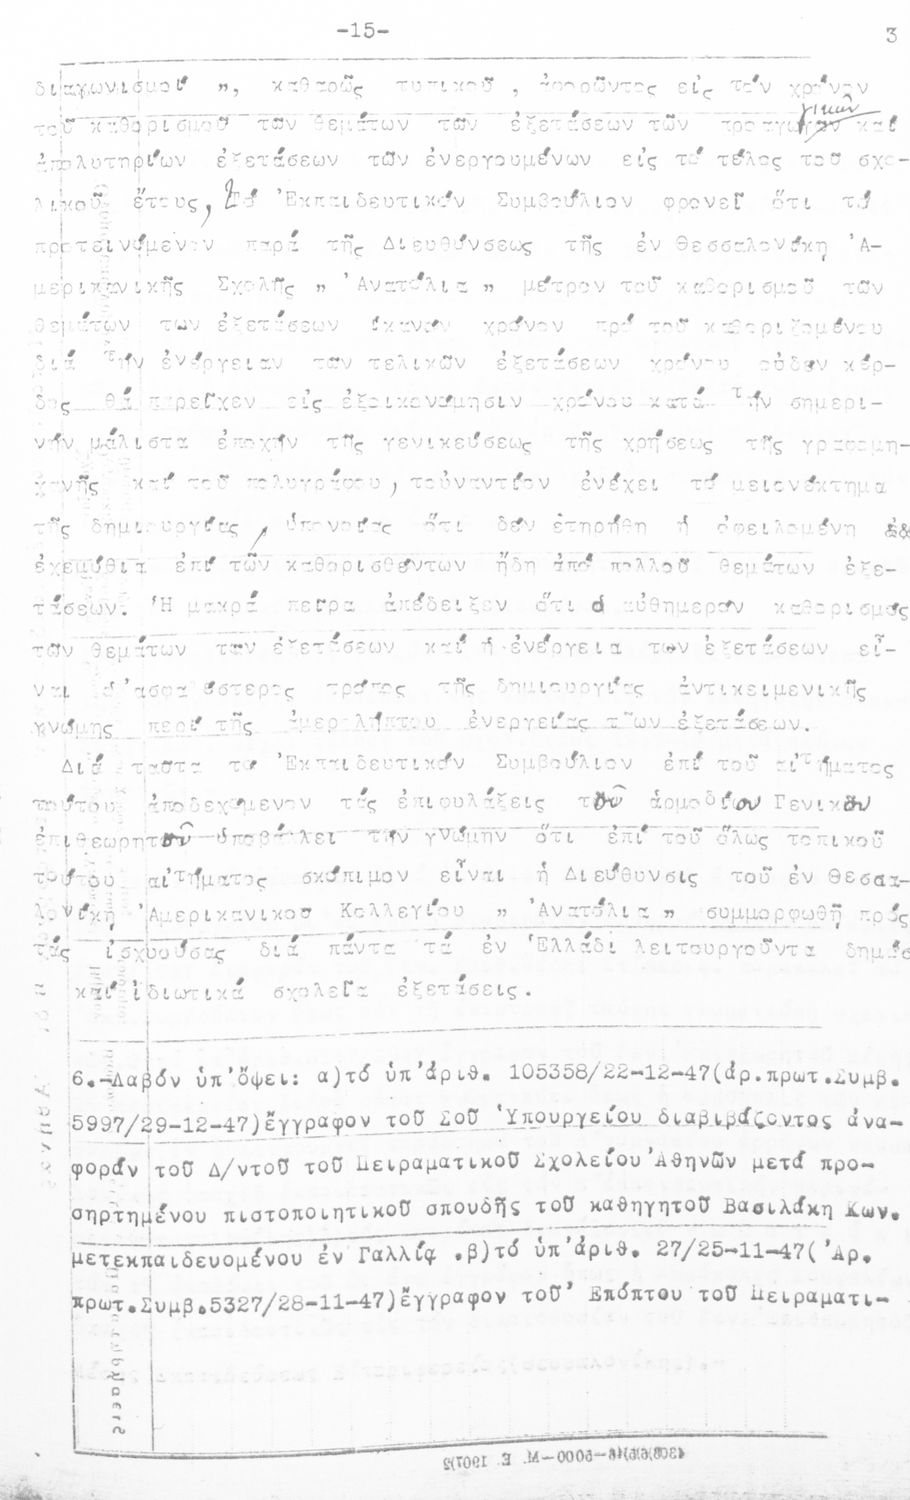 -15-
3
διαγωνισμοί „, καθαρῶς τυπικοῦ , ἀφορῶντος εἰς τόν χρόνον
τοῦ καθορισμοῦ τῶν θεμάτων τῶν ἐξετάσεων τῶν προαγωγικῶν καί
ἀπολυτηρίων ἐξετάσεων τῶν ἐνεργουμένων εἰς τό τέλος τοῦ σχο-
λικοῦ ἔτους, Τό Ἐκπαιδευτικόν Συμβούλιον φρονεῖ ὅτι τό
προτεινόμενον παρά τῆς Διευθύνσεως τῆς ἐν Θεσσαλονίκῃ Ἀ-
μερικανικῆς Σχολῆς „ Ἀνατόλια „ μέτρον τοῦ καθορισμοῦ τῶν
θεμάτων των ἐξετάσεων ἱκανόν χρόνον πρό τοῦ καθοριζομένου
διά τήν ἐνέργειαν των τελικῶν ἐξετάσεων χρόνου οὐδέν κέρ-
δος θά παρεῖχεν εἰς ἐξοικονόμησιν χρόνου κατά τήν σημερι-
νήν μάλιστα ἐποχήν τῆς γενικεύσεως τῆς χρήσεως τῆς γραφομη-
χανῆς καί τοῦ πολυγράφου, τοὐναντίον ἐνέχει τό μειονέκτημα
τῆς δημιουργίας, ὑπονοίας ὅτι δέν ἐτηρήθη ἡ ὀφειλομένη
ἐχεμύθια ἐπί τῶν καθορισθέντων ἤδη ἀπό πολλοῦ θεμάτων ἐξε-
τάσεων. Ἡ μακρά πεῖρα ἀπέδειξεν ὅτι ὁ αὐθημερόν καθορισμός
τῶν θεμάτων των ἐξετάσεων καί ἡ ἐνέργεια των ἐξετάσεων εἶ-
ναι ὁ ἀσφαλέστερος τρόπος τῆς δημιουργίας ἀντικειμενικῆς
γνώμης περί τῆς ἀμερολήπτου ἐνεργείας τῶν ἐξετάσεων.
Διά ταῦτα το Ἐκπαιδευτικόν Συμβούλιον ἐπί τοῦ αἰτήματος
τούτου ἀποδεχόμενον τάς ἐπιφυλάξεις τῶν ἁρμοδίων Γενικῶν
ἐπιθεωρητῶν ὑποβάλλει τήν γνώμην ὅτι ἐπί τοῦ ὅλως τοπικοῦ
τούτου αἰτήματος σκόπιμον εἶναι ἡ Διεύθυνσις τοῦ ἐν Θεσσα-
λονίκῃ Ἀμερικανικοῦ Κολλεγίου „ Ἀνατόλια „ συμμορφωθῇ πρός
τάς ἰσχυούσας διά πάντα τά ἐν Ἑλλάδι λειτουργοῦντα δημόσ
καί ἰδιωτικά σχολεῖα ἐξετάσεις.
6.-Λαβόν ὑπ'ὄψει: α)τό ὑπ'ἀριθ. 105358/22-12-47(ἀρ.πρωτ.Συμβ.
5997/29-12-47)ἔγγραφον τοῦ Σοῦ Ὑπουργείου διαβιβάζοντος ἀνα-
φοράν τοῦ Δ/ντοῦ τοῦ Πειραματικοῦ Σχολείου Ἀθηνῶν μετά προ-
σηρτημένου πιστοποιητικοῦ σπουδῆς τοῦ καθηγητοῦ Βασιλάκη Κων.
μετεκπαιδευομένου ἐν Γαλλίᾳ .β)τό ὑπ'ἀριθ. 27/25-11-47(Ἀρ.
πρωτ.Συμβ.5327/28-11-47)ἔγγραφον τοῦ Ἐπόπτου τοῦ Πειραματι-